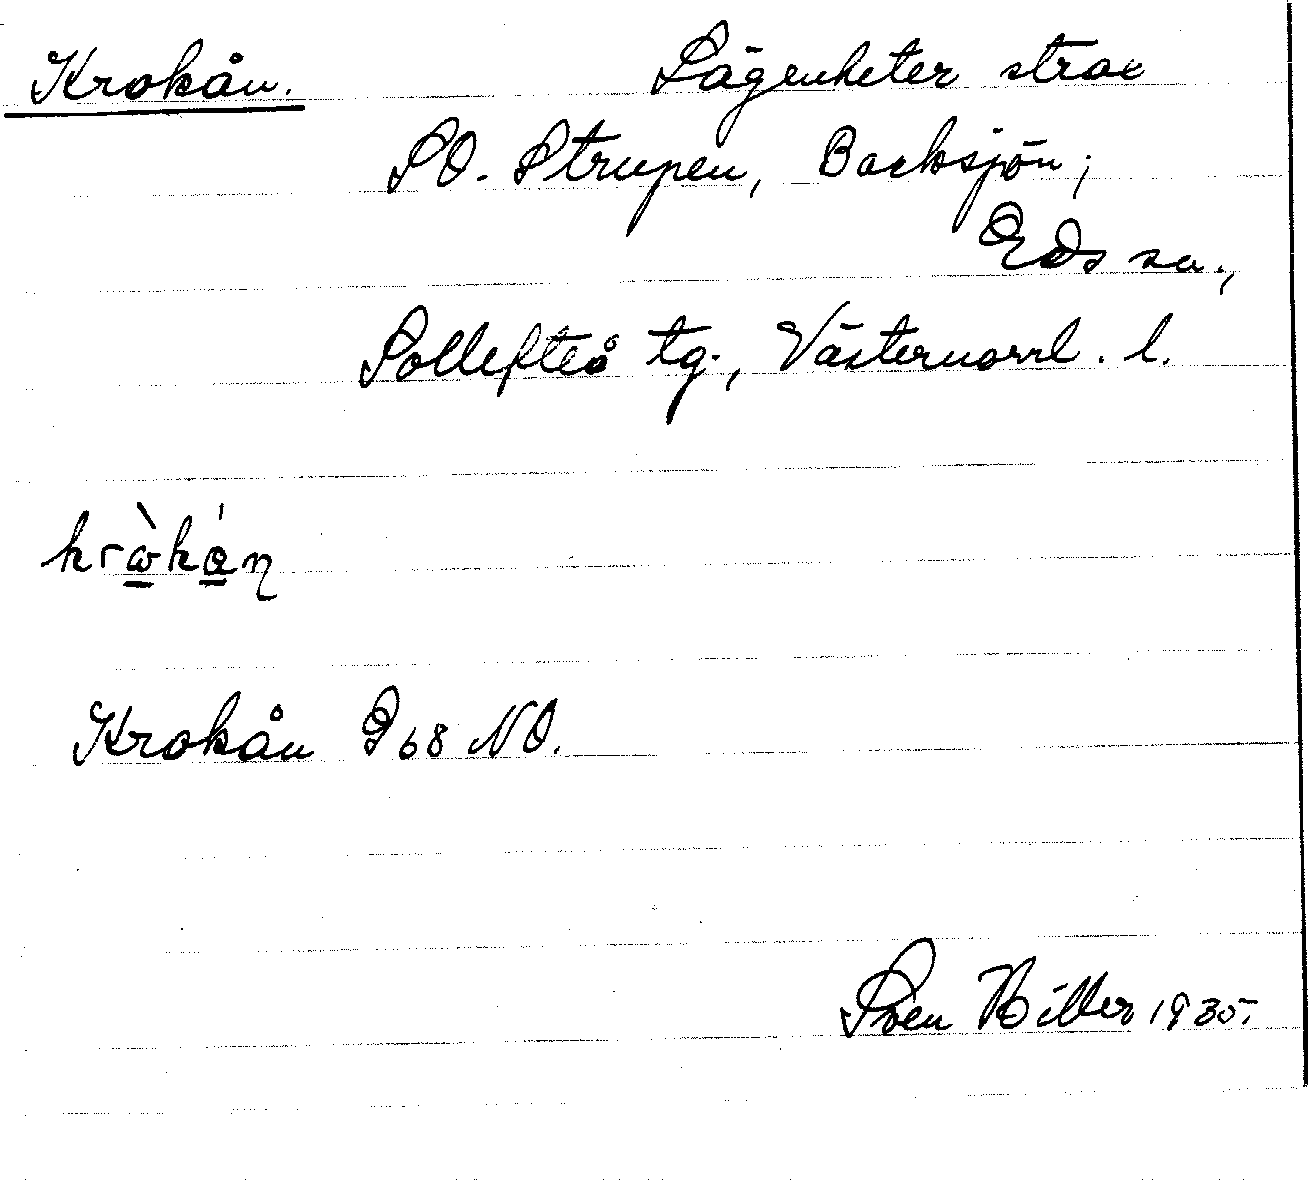 Krokån. Lägenheter strax
SO. Strupen, Backsjön;
Eds sn.,
Sollefteå tg., Västernorrl. l.
krὼkán
Krokån G 68 NO.
Sven Hiller 1935.